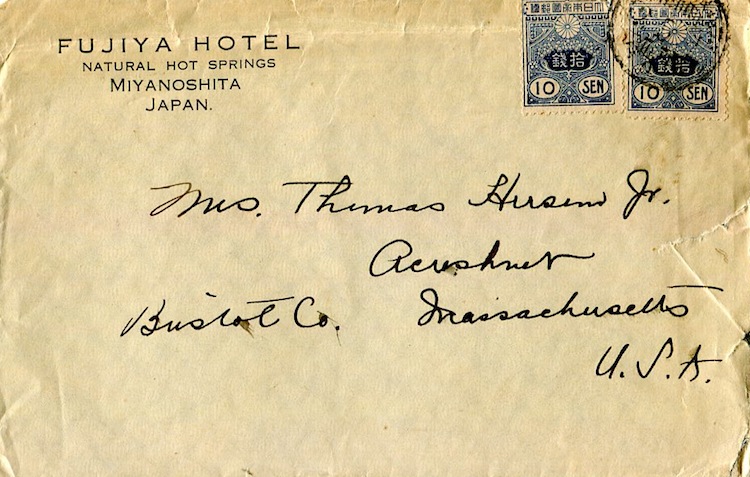 FUJIYA HOTEL
NATURAL HOT SPRINGS
MIYANOSHITA
JAPAN.
大日本帝國郵便
拾錢
10 SEN
拾錢
10 SEN
Mrs. Thomas Hersom Jr.
Acushnet
Bristol Co. Massachusetts
U.S.A.